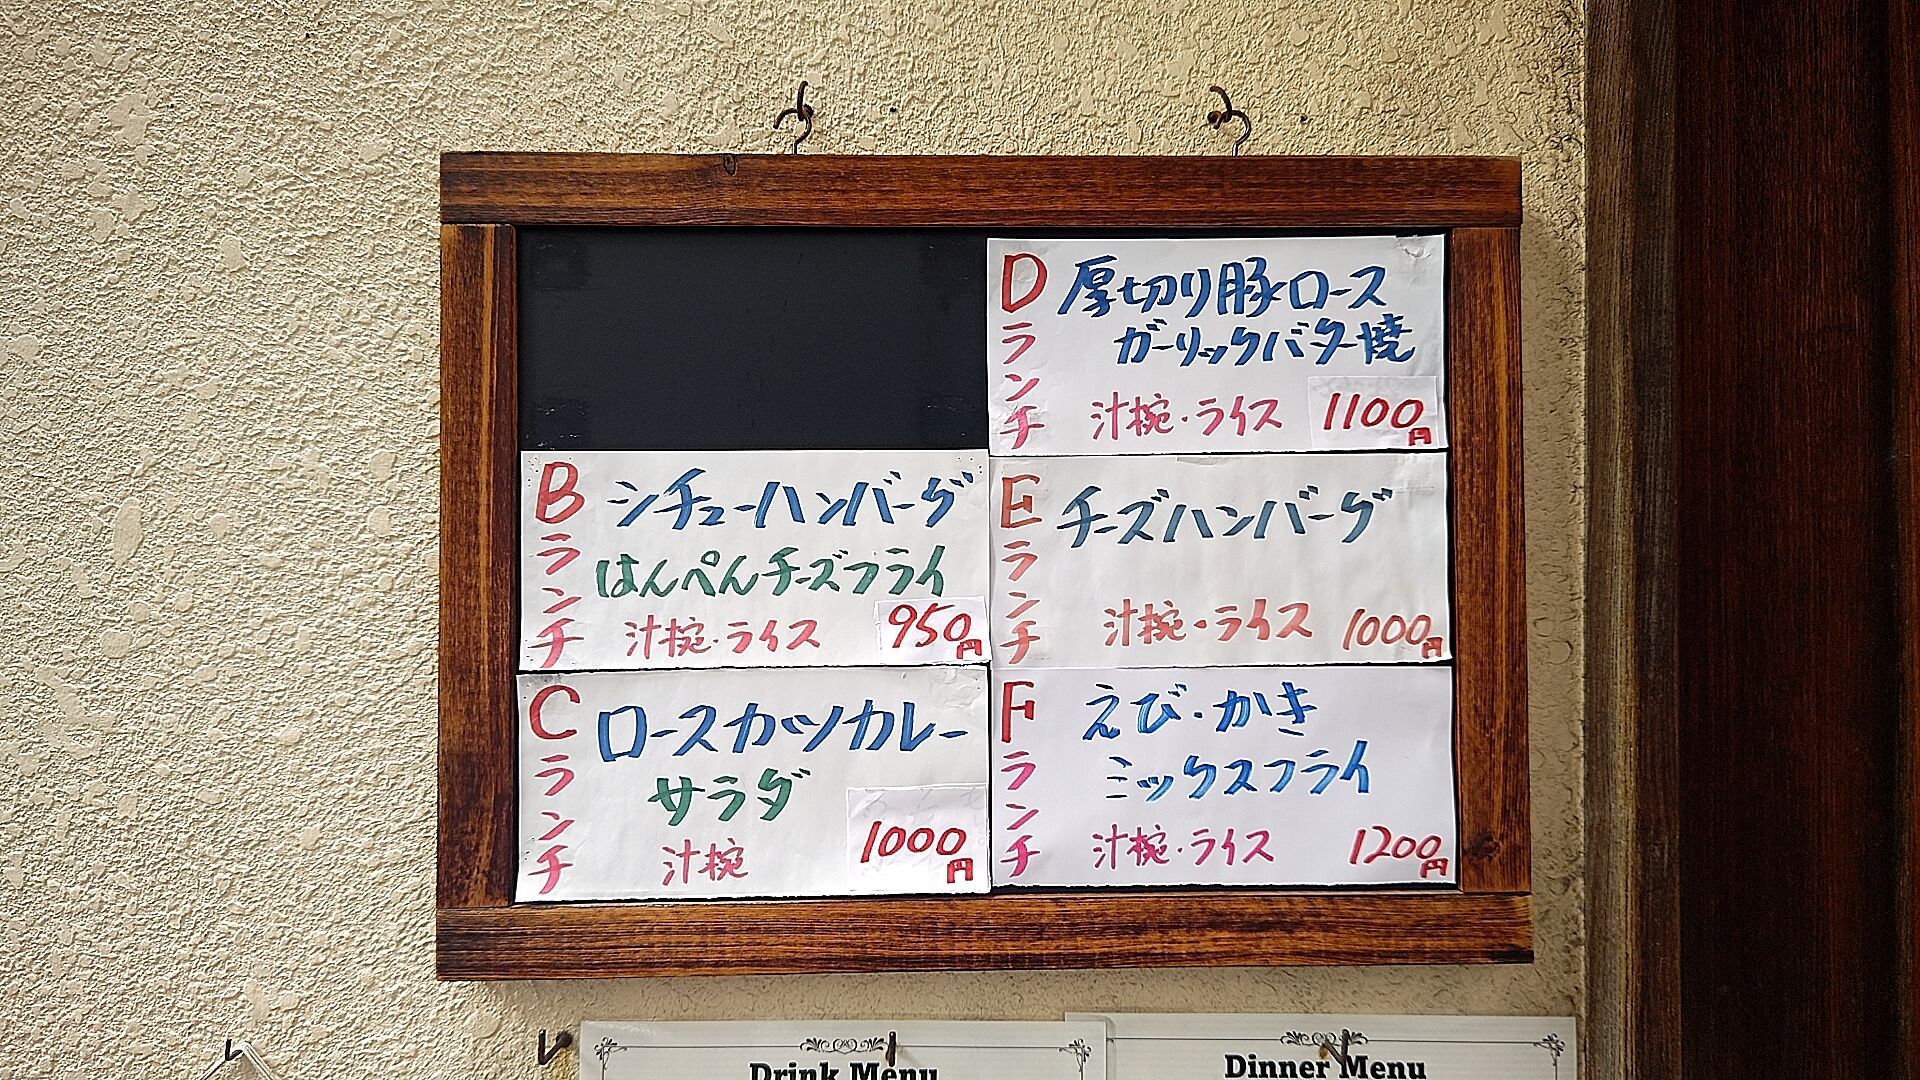 Bランチ
シチューハンバーグ
はんぺんチーズフライ
汁椀・ライス 950円
Cランチ
ロースカツカレー
サラダ
汁椀 1000円
Dランチ
厚切り豚ロース
ガーリックバター焼
汁椀・ライス 1100円
Eランチ
チーズハンバーグ
汁椀・ライス 1000円
Fランチ
えび・かき
ミックスフライ
汁椀・ライス 1200円
Drink Menu
Dinner Menu